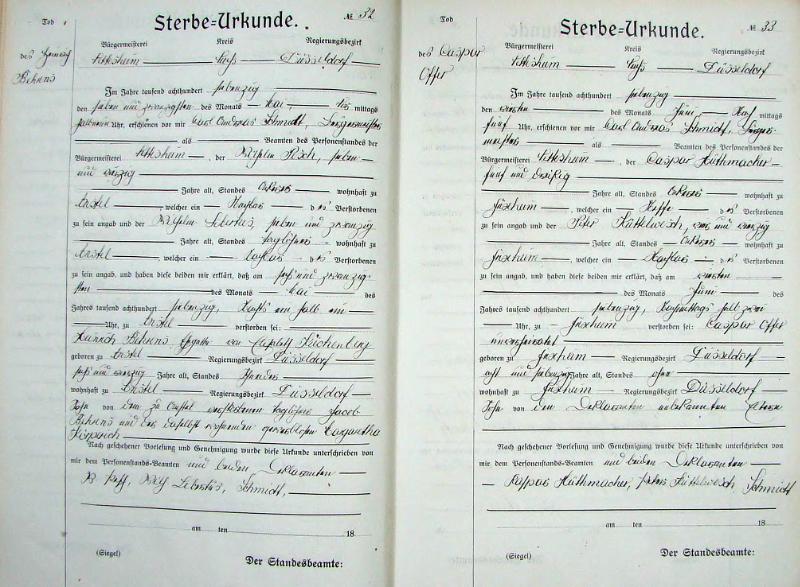 Tod
des Heinrich
Behrens
Sterbe-Urkunde.
№ 32
Bürgermeisterei Kreis Regierungsbezirk
Düsseldorf
Im Jahre tausend achthundert siebenzig
den sieben und zwanzigsten des Monats Mai, mittags
Uhr, erschienen vor mir Carl Andreas Schmidt, Bürgermeister
als Beamten des Personenstandes der
Bürgermeisterei, der Wilhelm, sieben
und vierzig
Jahre alt, Standes Ackerer wohnhaft zu
welcher ein Nachbar des Verstorbenen
zu sein angab und der Wilhelm Libertus, sieben und zwanzig
Jahre alt, Standes Taglöhner wohnhaft zu
welcher ein Nachbar des Verstorbenen
zu sein angab, und haben diese beiden mir erklärt, daß am sechs und zwanzig
sten des Monats Mai des
Jahres tausend achthundert siebenzig, Nachts um halb ein
Uhr, zu verstorben sei:
Heinrich Behrens, Ehegatte von
geboren zu Regierungsbezirk Düsseldorf
sechs und vierzig Jahre alt, Standes
wohnhaft zu Regierungsbezirk Düsseldorf
Sohn von dem zu verstorbenen Taglöhner Jacob
Behrens und der daselbst wohnenden gewerblosen Margaretha
Nach geschehener Vorlesung und Genehmigung wurde diese Urkunde unterschrieben von
mir dem Personenstands-Beamten und beiden Deklaranten
Libertus, Schmidt,
am ten 18
(Siegel) Der Standesbeamte:
Tod
des Caspar
Offer
Sterbe-Urkunde.
№ 33
Bürgermeisterei Kreis Regierungsbezirk
Düsseldorf
Im Jahre tausend achthundert siebenzig
den ersten des Monats Juni, Nach mittags
fünf Uhr, erschienen vor mir Carl Andreas Schmidt, Bürger-
meister als Beamten des Personenstandes der
Bürgermeisterei, der Caspar Hüthmacher
fünf und dreißig
Jahre alt, Standes Ackerer wohnhaft zu
welcher ein Neffe des Verstorbenen
zu sein angab und der Peter, und vierzig
Jahre alt, Standes Ackerer wohnhaft zu
welcher ein Nachbar des Verstorbenen
zu sein angab, und haben diese beiden mir erklärt, daß am ersten
des Monats Juni des
Jahres tausend achthundert siebenzig, Nachmittags halb zwei
Uhr, zu verstorben sei: Caspar Offer
unverheiratet
geboren zu Regierungsbezirk Düsseldorf
acht und siebenzig Jahre alt, Standes ohne
wohnhaft zu Regierungsbezirk Düsseldorf
Sohn von den Deklaranten unbekannten Eltern
Nach geschehener Vorlesung und Genehmigung wurde diese Urkunde unterschrieben von
mir dem Personenstands-Beamten und beiden Deklaranten
Caspar Hüthmacher, Peter, Schmidt
am ten 18
(Siegel) Der Standesbeamte: